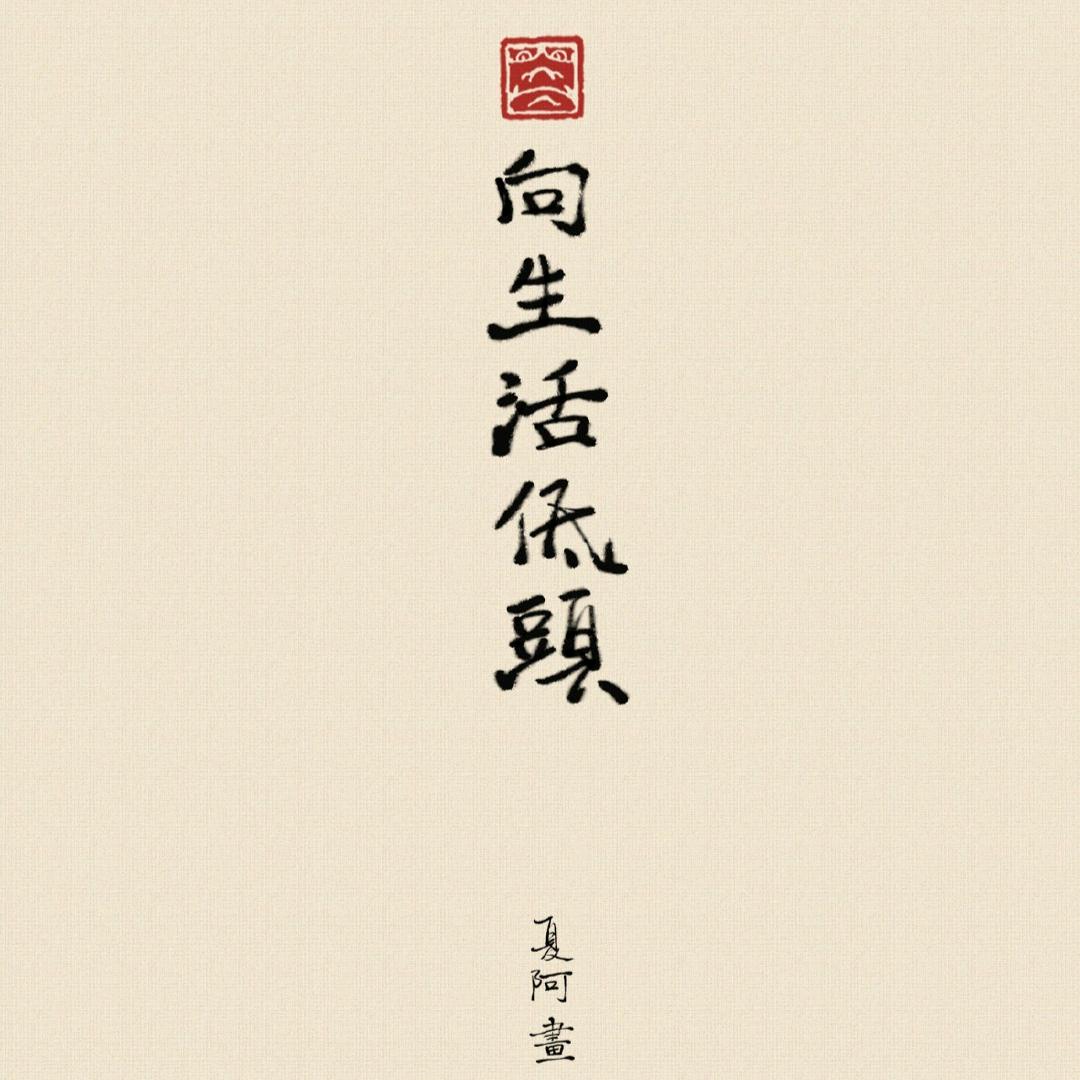 向生活低頭
夏阿畫